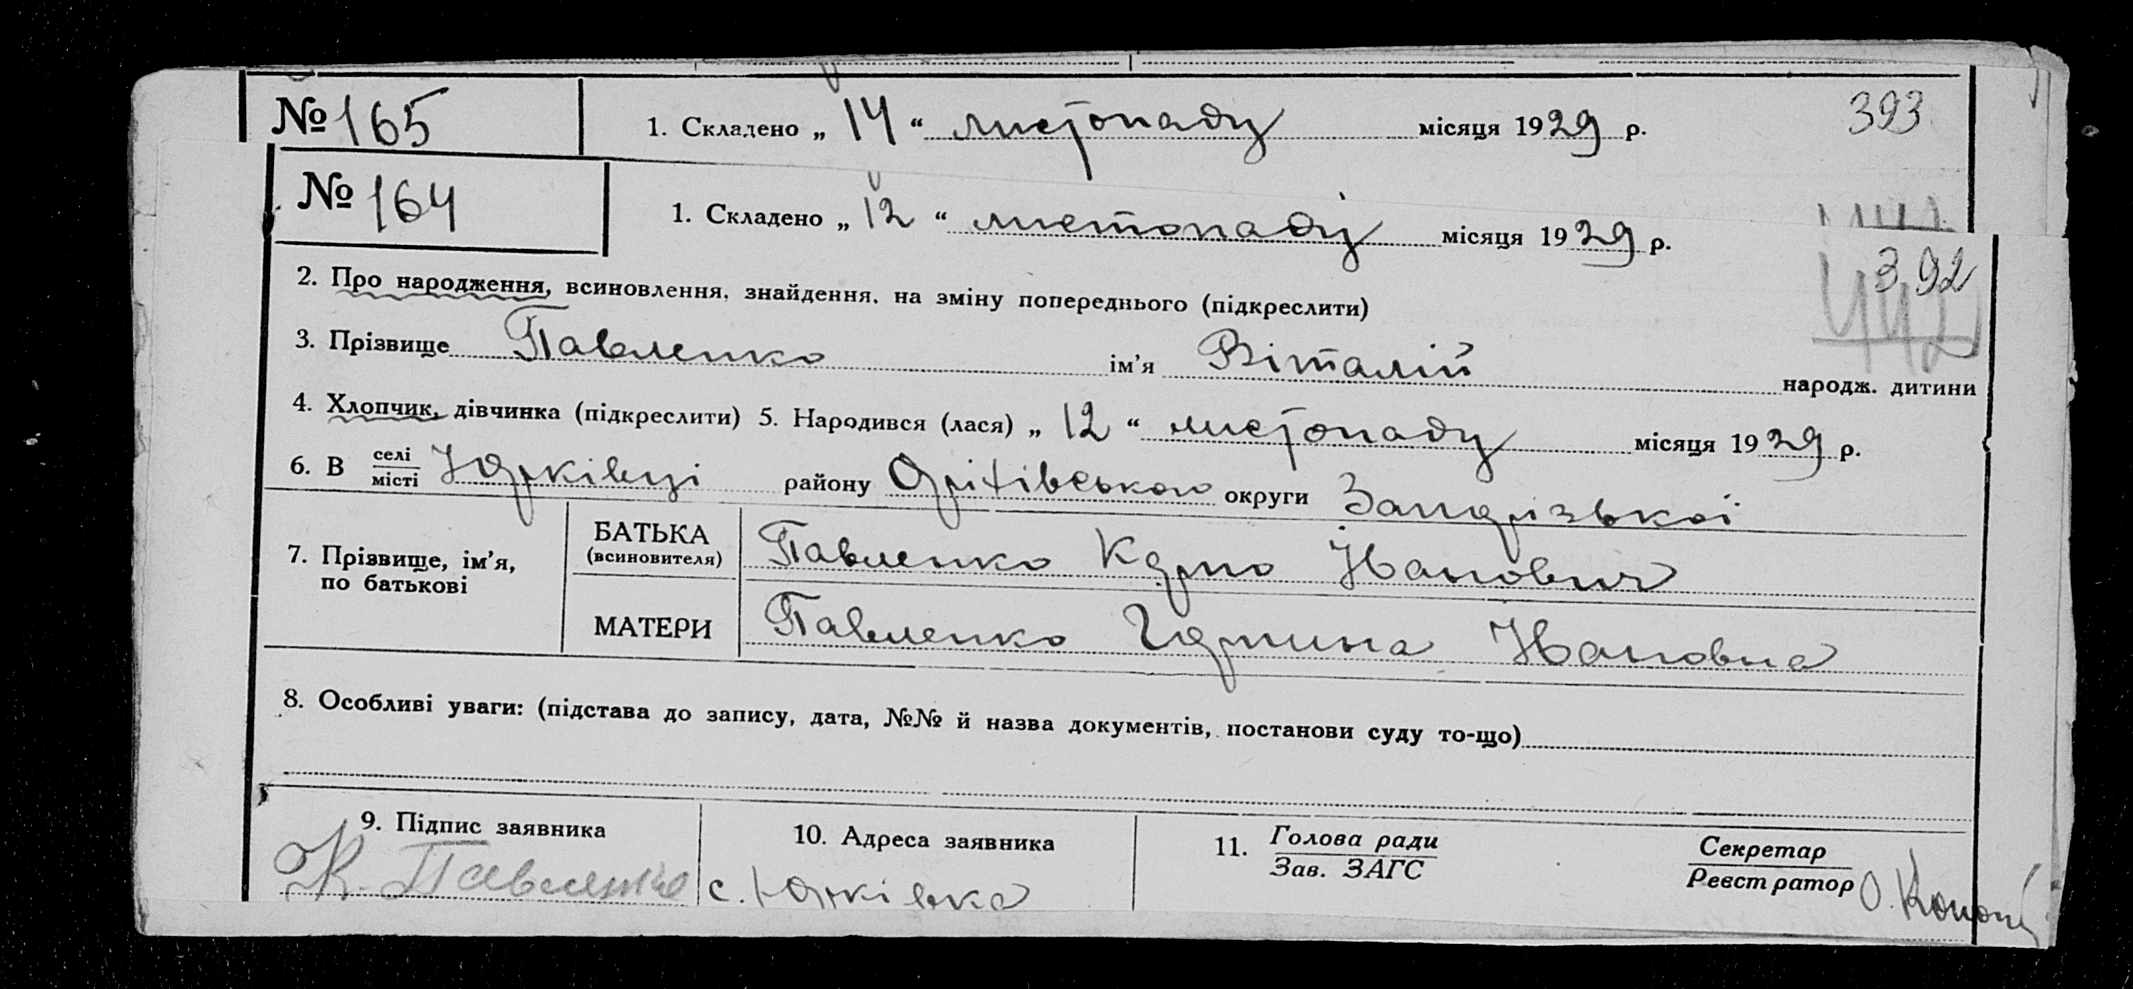 № 165 1. Складено „ 14 “ листопаду місяця 1929 р. 393
№ 164 1. Складено „ 12 “ листопаду місяця 1929 р.
392
442
2. Про народження, всиновлення, знайдення, на зміну попереднього (підкреслити)
3. Прізвище Павленко ім’я Віталій народж. дитини
4. Хлопчик, дівчинка (підкреслити) 5. Народився (лася) „ 12 “ листопаду місяця 1929 р.
6. В селі/місті Юрківці району Оріхівського округи Запорізької
7. Прізвище, ім’я, по батькові
БАТЬКА (всиновителя) Павленко Карпо Іванович
МАТЕРИ Павленко Ивановна
8. Особливі уваги: (підстава до запису, дата, №№ й назва документів, постанови суду то-що)
9. Підпис заявника 10. Адреса заявника 11. Голова ради Секретар
Зав. ЗАГС Реєстратор
К. Павленко с. Юрківка О.